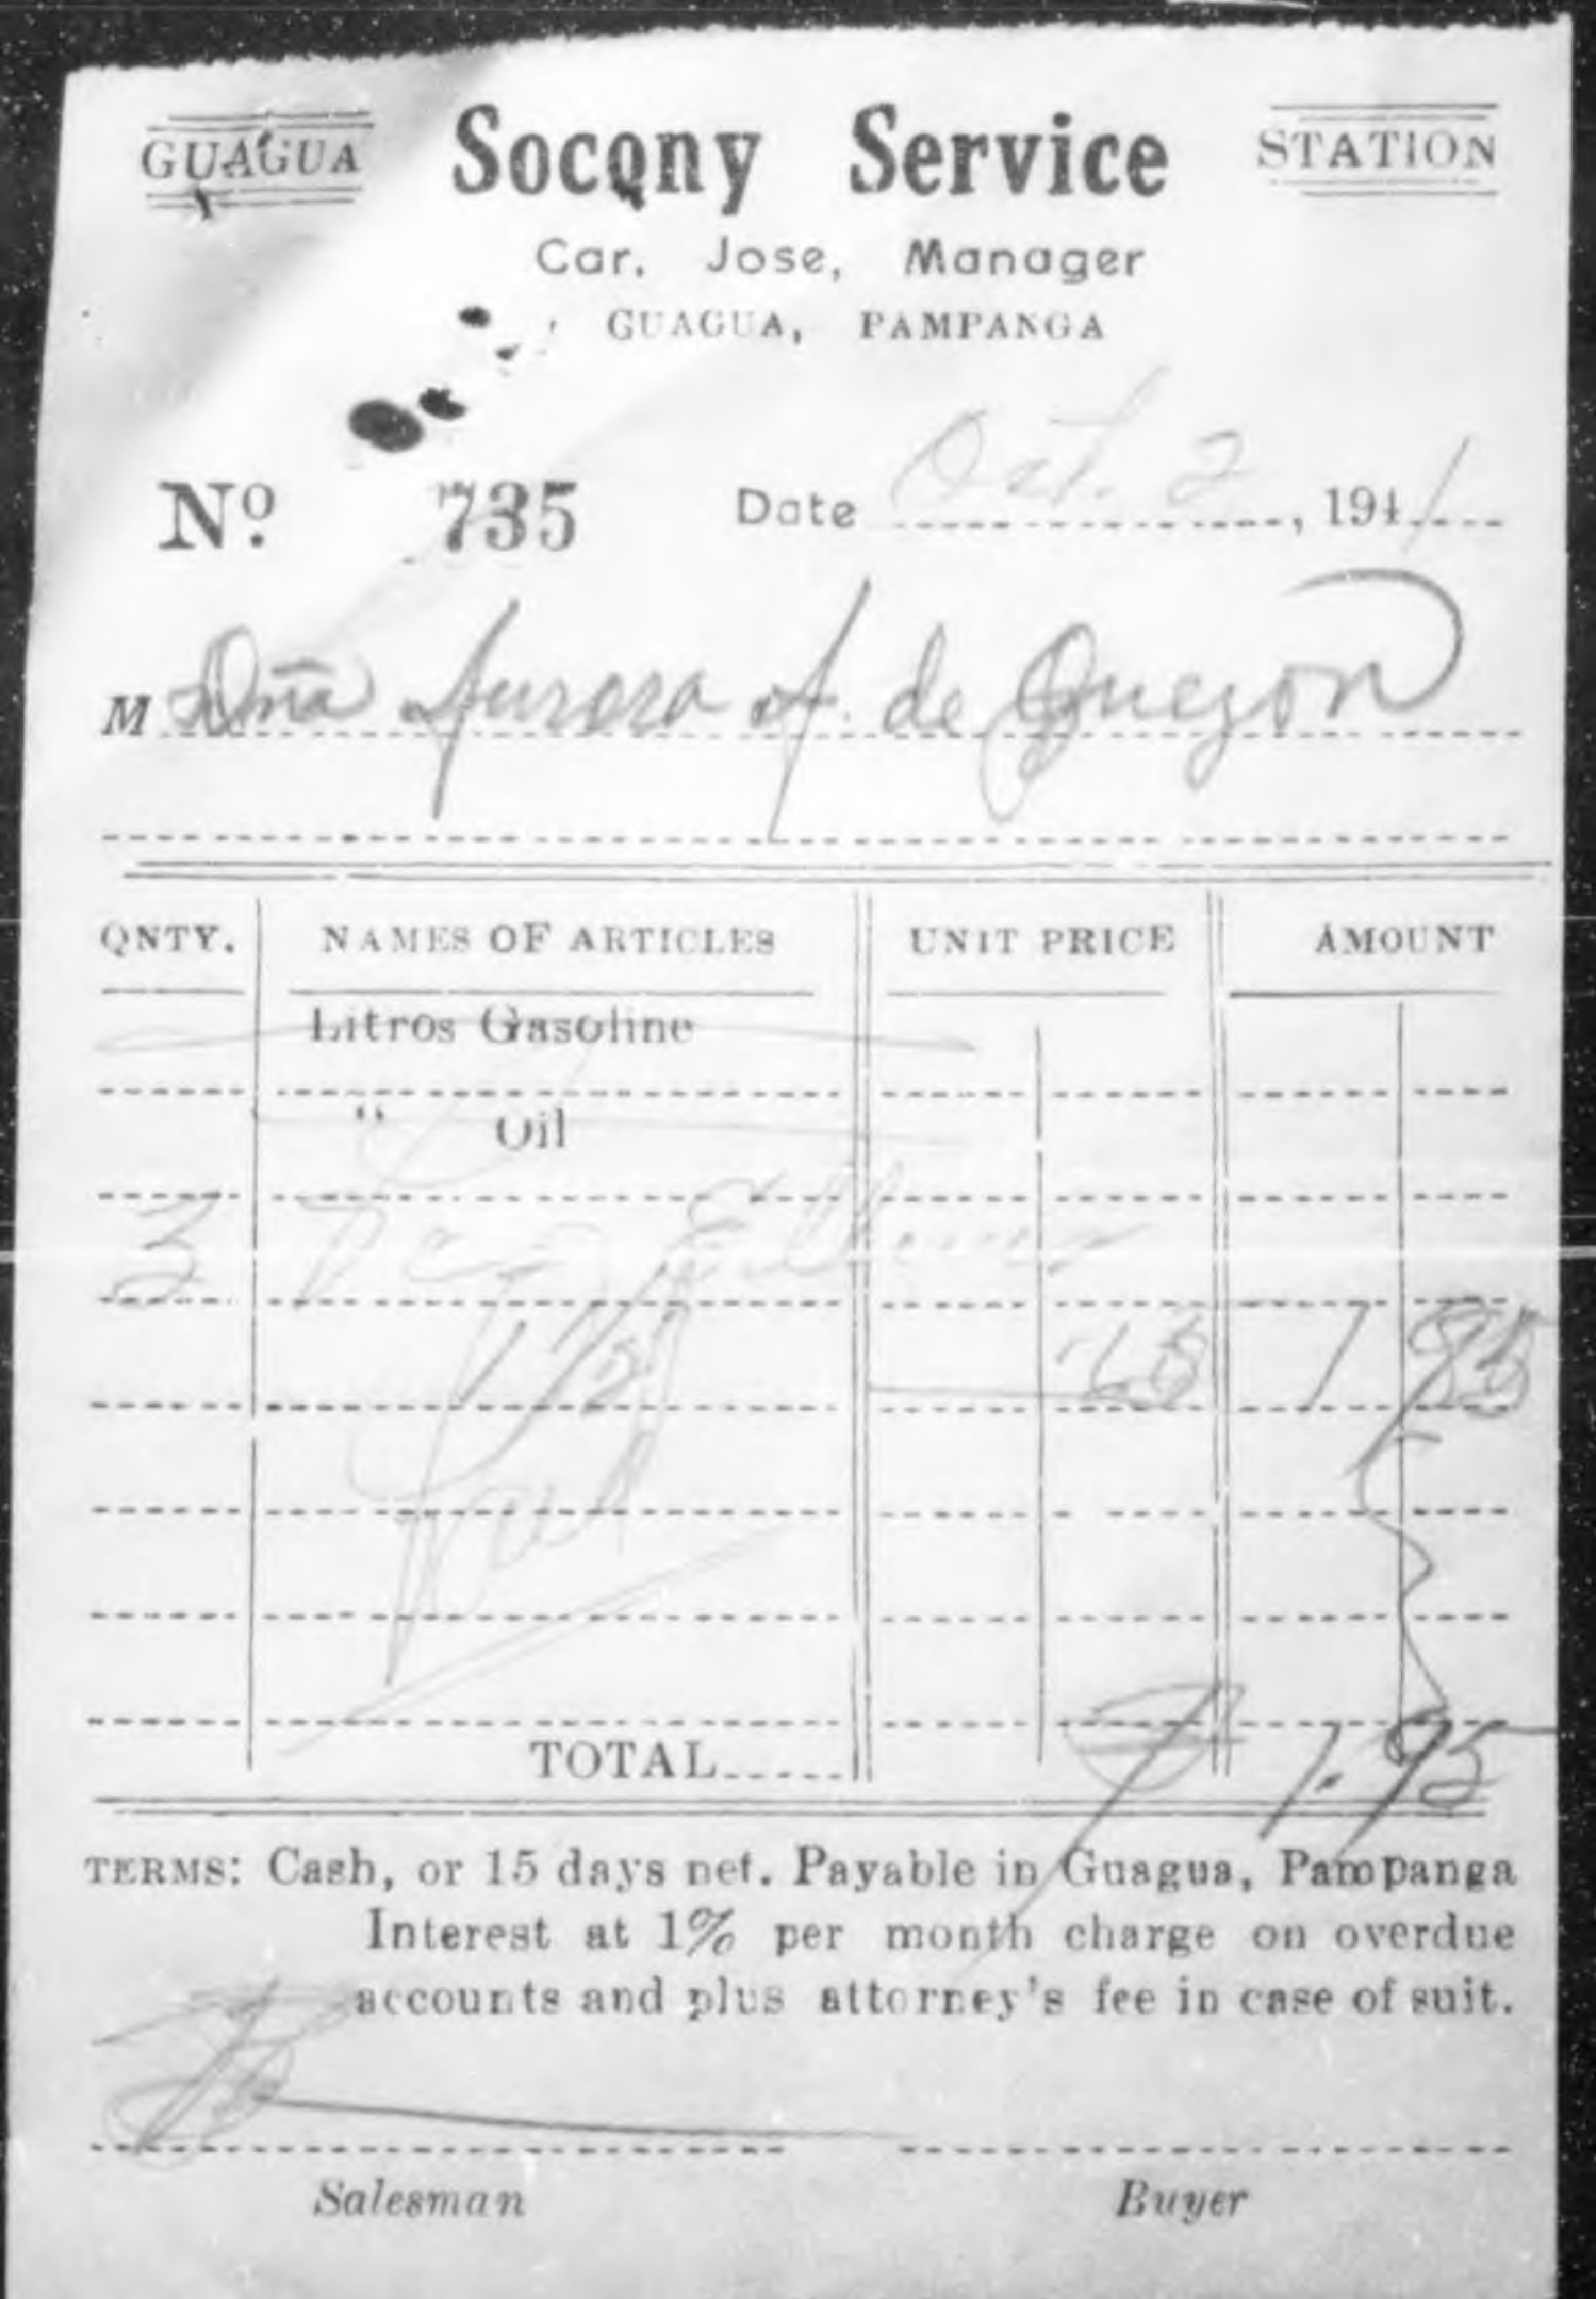 GUAGUA Socony Service STATION
Car. Jose, Manager
GUAGUA, PAMPANGA
Nº. 735 Date Oct. 2, 1941
M Dña Aurora A. de Quezon
QNTY. NAMES OF ARTICLES UNIT PRICE AMOUNT
Litros Gasoline
" Oil
3
1 1/2 65 1 95
Paid
TOTAL 1.95
TERMS: Cash, or 15 days net. Payable in Guagua, Pampanga
Interest at 1% per month charge on overdue
accounts and plus attorney's fee in case of suit.
Salesman Buyer